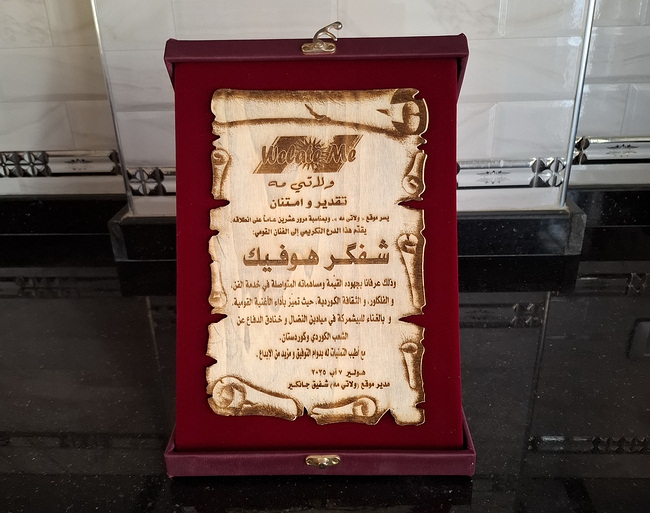 Welate Me
ولاتي مه
تقدير و امتنان
يسر موقع ـ ولاتي مه ـ، وبمناسبة مرور عشرين عـامـاً على انطلاقه،
يقدّم هذا الدرع التكريمي إلى الفنان القومي:
شـفـگـر هـوفـيـك
وذلك عرفانا بجهوده القيمة ومساهماته المتواصلة في خدمة الفن،
و الفلكلور، و الثقافة الكوردية، حيث تميّز بأداء الأغنية القومية،
و بالغناء للبيشمركة في ميادين النضال و خنادق الدفاع عن
الشعب الكوردي وكوردستان.
مع أطيب التمنيات له بدوام التوفيق و مزيد من الإبداع.
هـولـيـر ٧ آب ٢٠٢٥
مدير موقع (ولاتي مه) شفيق جانكير